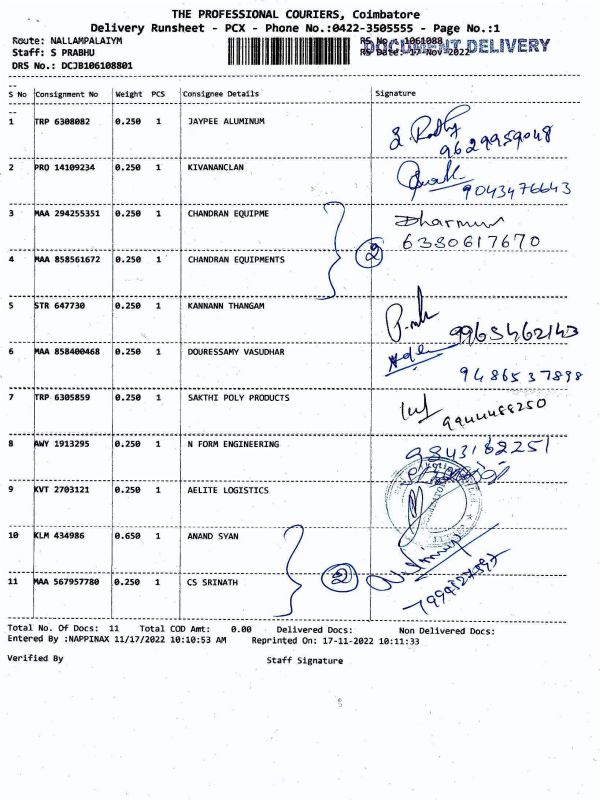 THE PROFESSIONAL COURIERS, Coimbatore
Delivery Runsheet - PCX - Phone No.:0422-3505555 - Page No.:1
Route: NALLAMPALAIYM RS No.: 1061088
DOCUMENT DELIVERY
Staff: S PRABHU RS Date: 17-Nov-2022
DRS No.: DCJB106108801
S No Consignment No Weight PCS Consignee Details Signature
1 TRP 6308082 0.250 1 JAYPEE ALUMINUM
9629959048
2 PRO 14109234 0.250 1 KIVANANCLAN
9043476643
3 MAA 294255351 0.250 1 CHANDRAN EQUIPME Dharmun
6380617670
2
4 MAA 858561672 0.250 1 CHANDRAN EQUIPMENTS
5 STR 647730 0.250 1 KANNANN THANGAM
9963462143
6 MAA 858400468 0.250 1 DOURESSAMY VASUDHAR
9486537898
7 TRP 6305859 0.250 1 SAKTHI POLY PRODUCTS
9944488250
8 AWY 1913295 0.250 1 N FORM ENGINEERING 9843182251
9 KVT 2703121 0.250 1 AELITE LOGISTICS
10 KLM 434986 0.650 1 ANAND SYAN
2
11 MAA 567957780 0.250 1 CS SRINATH
Total No. Of Docs: 11 Total COD Amt: 0.00 Delivered Docs: Non Delivered Docs:
Entered By :NAPPINAX 11/17/2022 10:10:53 AM Reprinted On: 17-11-2022 10:11:33
Verified By Staff Signature